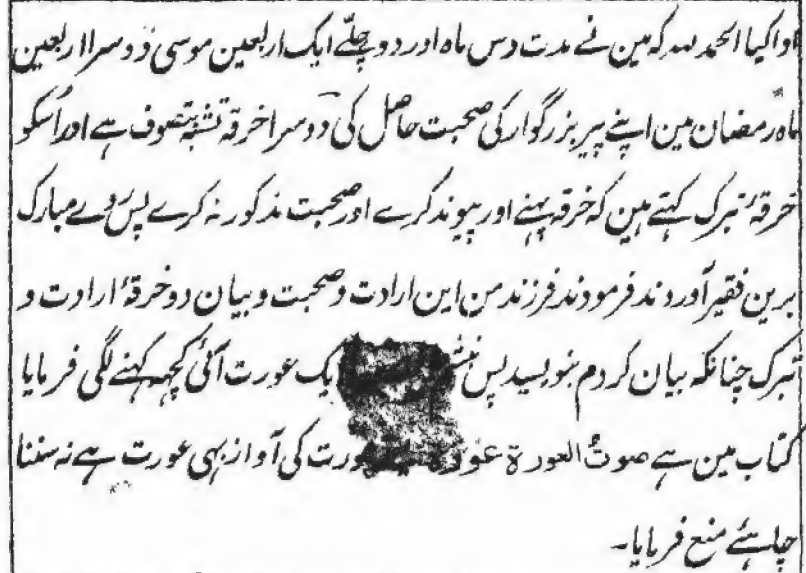 ادا کیا الحمد للہ کہ مین نے مدت دس ماہ اور دو چلّے ایک اربعین موسی دوسرا اربعین
ماہ رمضان مین اپنے پیر بزرگوار کی صحبت حاصل کی دوسرا خرقہ تشبہ تصوف ہے اور اُسکو
خرقۂ تبرک کہتے ہین کہ خرقہ پہنے اور پیوند کرے اور صحبت مذکور نہ کرے پس روے مبارک
برین فقیر آوردند فرمودند فرزند من این ارادت و صحبت و بیان دو خرقۂ ارادت و
تبرک چنانکہ بیان کردم بنویسید پس ایک عورت آئی کچھہ کہنے لگی فرمایا
کتاب مین ہے صوتُ العورۃ عورۃ عورت کی آواز بہی عورت ہے نہ سننا
چاہئے منع فرمایا۔